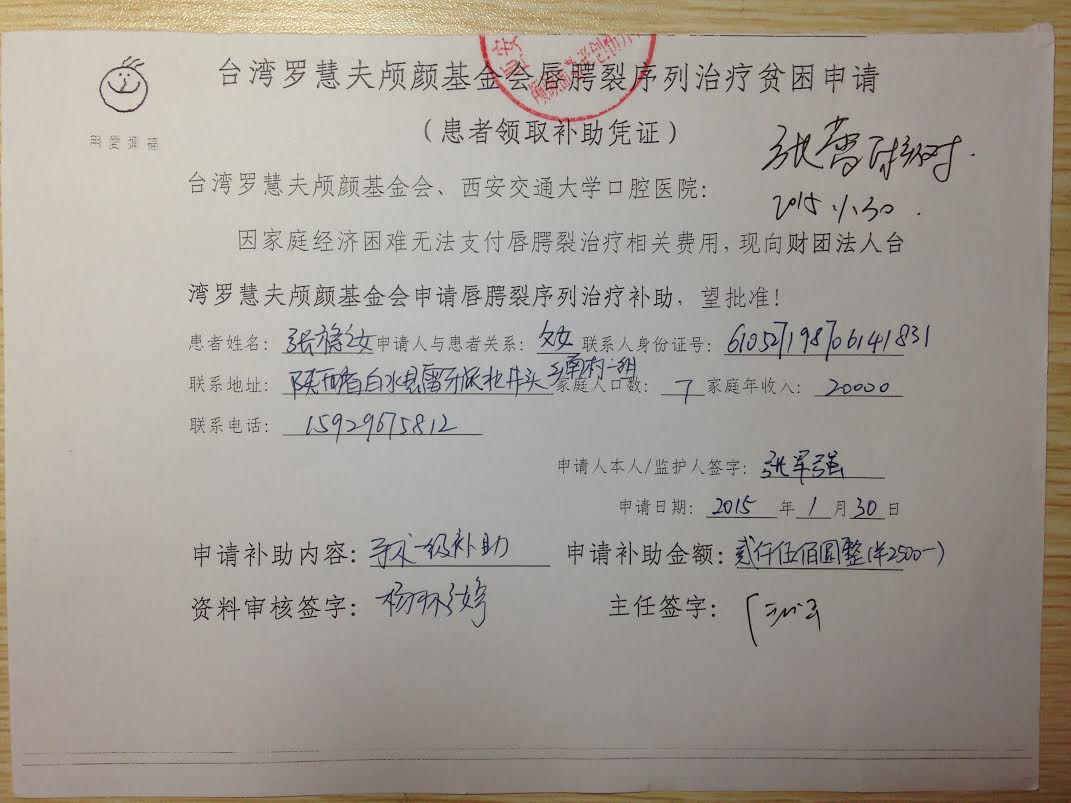 台湾罗慧夫颅颜基金会唇腭裂序列治疗贫困申请
（患者领取补助凭证）
2015.1.30.
台湾罗慧夫颅颜基金会、西安交通大学口腔医院：
因家庭经济困难无法支付唇腭裂治疗相关费用，现向财团法人台
湾罗慧夫颅颜基金会申请唇腭裂序列治疗补助，望批准！
患者姓名： 申请人与患者关系：父女 联系人身份证号：610527198706141831
联系地址：陕西省白水县雷牙 家庭人口数：7 家庭年收入：20000
联系电话：15929675812
申请人本人/监护人签字：张军强
申请日期：2015年1月30日
申请补助内容：手术一级补助 申请补助金额：贰仟伍佰圆整(¥2500-)
资料审核签字： 主任签字：